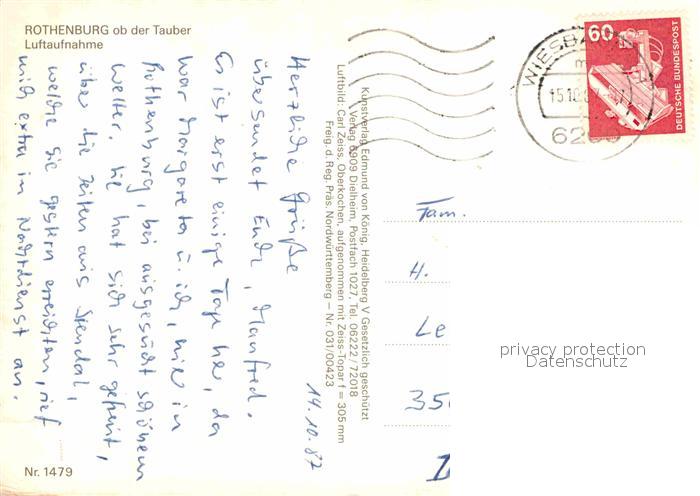 ROTHENBURG ob der Tauber
Luftaufnahme
14.10.87
Herzliche Grüße
übersendet Euch, Manfred.
Es ist erst einige Tage her, da
war Margareta u. ich, hier in
Rothenburg, bei ausgesucht schönem
Wetter. Sie hat sich sehr gefreut,
über die Zeilen aus Stendal,
welche sie gestern erreichten, rief
mich extra im Nachtdienst an.
Nr. 1479
Kunstverlag Edmund von König, Heidelberg V Gesetzlich geschützt
Verlag 6909 Dielheim, Postfach 1027, Tel. 06222/72018
Luftbild: Carl Zeiss, Oberkochen, aufgenommen mit Zeiss-Topar f = 305 mm
Freig. d. Reg. Präs. Nordwürttemberg – Nr. 031/00423
WIESB
15.10.87
62
60
DEUTSCHE BUNDESPOST
Fam.
H.
Le
35
privacy protection
Datenschutz